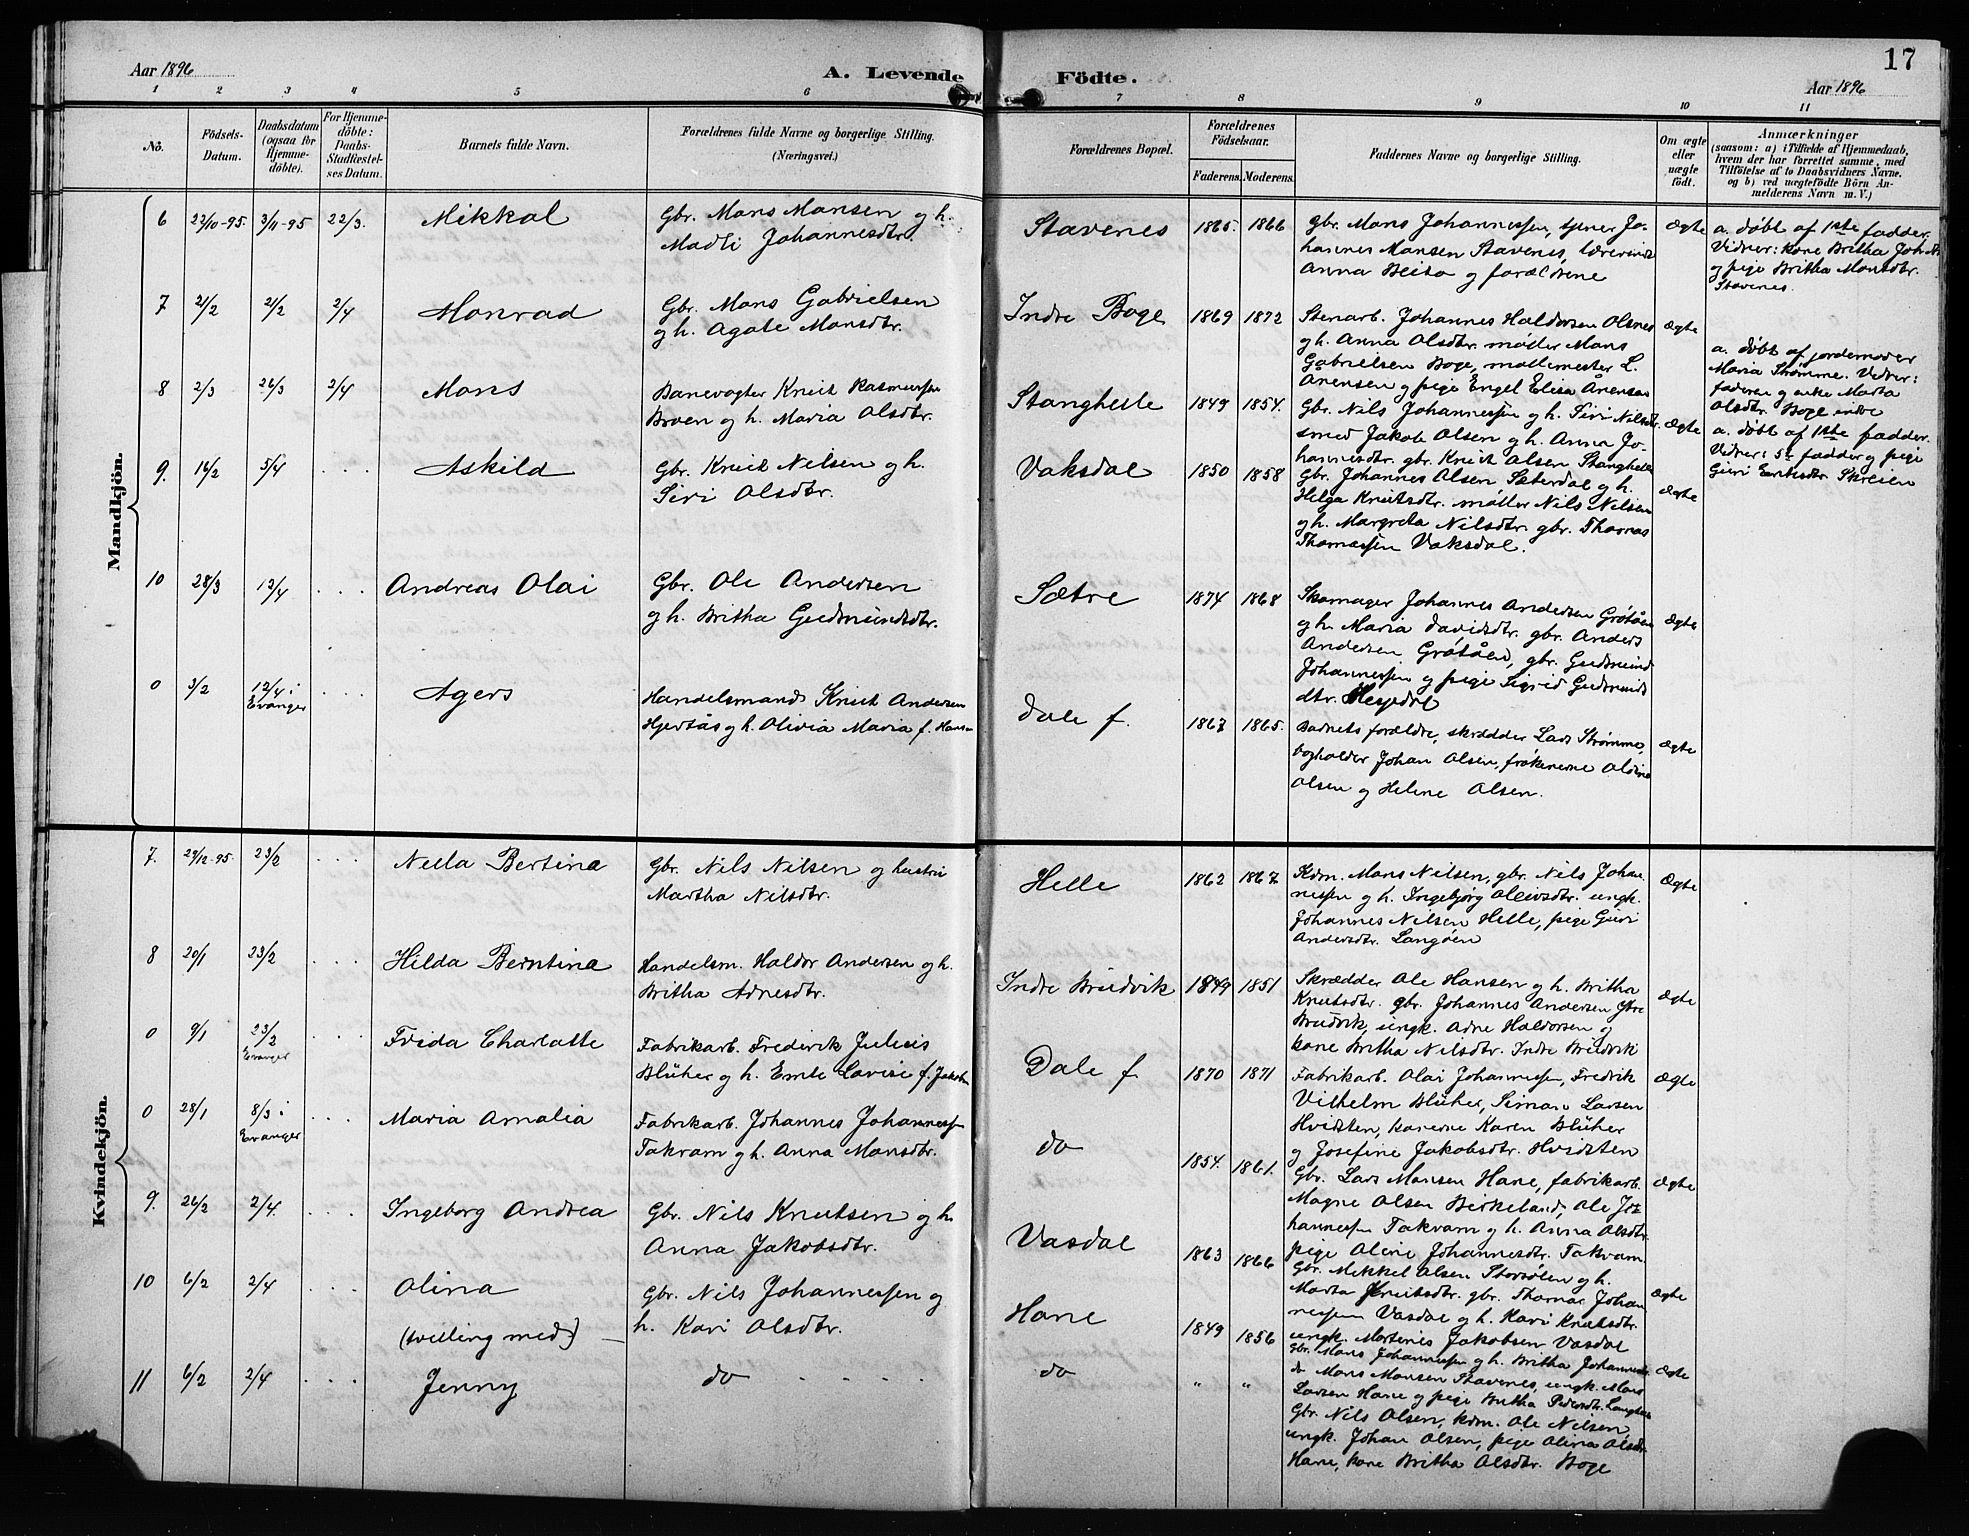 Aar 1896
A. Levende Födte.
17
Aar 1896
1 2 3 4 5 6 7 8 9 10 11
No.
Födsels-
Datum.
Daabsdatum
(ogsaa for
Hjemme-
döbte).
For Hjemme-
döbte:
Daabs-
Stadfæstel-
ses Datum.
Barnets fulde Navn.
Forældrenes fulde Navne og borgerlige Stilling.
(Næringsvei.)
Forældrenes Bopæl.
Forældrenes
Födselsaar.
Faderens. Moderens.
Faddernes Navne og borgerlige Stilling.
Om ægte
eller
uægte
födt.
Anmærkninger
(saasom: a) i Tilfælde af Hjemmedaab,
hvem der har forrettet samme, med
Tilföielse af to Daabsvidners Navne.
og b) ved uægtefödte Börn An-
melderens Navn m. V.)
Mandkjön.
6 22/10-95. 3/11-95 22/3. Mikkal
Gbr. Mons Monsen og h.
Madli Johannesdtr.
Stavenes 1865. 1866
Gbr. Mons Johannessen, tjener Jo-
hannes Monsen Stavenes,
Anna og forældrene
ægte
a. døbt af 1ste fadder.
Vidner: kone Britha
og pige Britha Monsdtr.
Stavenes.
7 2/2 2/4 Monrad
Gbr. Mons Gabrielsen
og h. Agate Monsdtr.
Indre Boge 1869 1872
Stenarb. Johannes Haldorsen Olsnes
og h. Anna Olsdtr. møller Mons
Gabrielsen Boge, møllemester L.
Årensen og pige Engel Elisa Årensen
ægte
a. døbt af jordemoder
Maria Strømme. Vidner:
faderen og enke Marta
Olsdtr. Boge indre
8 2/3 26/3 2/4 Mons
Banevogter Knut Rasmussen
Broen og h. Maria Olsdtr.
Stanghelle 1849 1854.
Gbr. Nils Johannessen og h. Siri Nilsdtr.
smed Jakob Olsen og h. Anna Jo-
hannesdtr. gbr. Knut Olsen Stanghelle
ægte
a. døbt af 1ste fadder.
Vidner: 5te fadder og pige
Guri Eriksdtr. Skreien
9. 16/2 5/4 . . . Askild
Gbr. Knut Nilsen og h.
Siri Olsdtr.
Vaksdal 1850 1858
Gbr. Johannes Olsen Sæterdal og h.
Helga Knutsdtr. møller Nils Nilsen
og h. Margreta Nilsdtr. gbr. Thomas
Thomassen Vaksdal.
ægte
10 28/3 12/4 . . . Andreas Olai
Gbr. Ole Andersen
og h. Britha Gudmundsdtr.
Sætre 1874 1868
Skomager Johannes Andersen Grøtåen
og h. Maria Davidsdtr. gbr. Anders
Andersen Grøtåen, gbr. Gudmund
Johannessen og pige Sigrid Gudmunds
dtr. Hesjedal
ægte
0 3/2 12/4 i . . . Agers
Evanger
Handelsmand Knut Andersen
Hjertås og h. Olivia Maria f. Hansen
Dale f. 1867 1865.
Barnets forældre, skrædder Lars Strømme,
bogholder Johan Olsen, frøkenerne
Olsen og Helene Olsen.
ægte
Kvindekjön.
7. 29/12-95. 23/2 . . . Nella Bertina
Gbr. Nils Nilsen og hustru
Martha Nilsdtr.
Helle 1862 1867
Kdm. Mons Nilsen, gbr. Nils Johan
nessen og h. Ingebjørg Oleivsdtr. ungk.
Johannes Nilsen Helle, pige Guri
Andersdtr. Langøen
Ægte
8 20/1 23/2 . . . Hilda Berntina
Handelsm. Haldor Andersen og h.
Britha Adnesdtr.
Indre Brudvik 1849 1851
Skrædder Ole Hansen og h. Britha
Knutsdtr. gbr. Johannes Andersen Ytre
Brudvik, ungk. Adne Haldorsen og
kone Britha Nilsdtr. Indre Brudvik
ægte
0 9/1 23/2 . . . Frida Charlotte
Evanger
Fabrikarb. Frederik Julius
Blüher og h. Emte Lovise f. Jakobsen
Dale f. 1870 1871
Fabrikarb. Olai Johannessen, Fredrik
Vilhelm Blüher, Simon Larsen
Hvidsten, konerne Karen Blüher
og Josefine Jakobsdtr. Hvidsten
ægte
0 28/1 8/3 i . . . Maria Amalia
Evanger
Fabrikarb. Johannes Johannessen
Takvam og h. Anna Monsdtr.
do 1854. 1861.
Gbr. Lars Monsen Hane, fabrikarb.
Magne Olsen Birkeland, Ole Jo-
hannessen Takvam og h. Anna Olsdtr.
pige Oline Johannesdtr. Takvam
ægte
9. 26/2 2/4. . . . Ingeborg Andrea
Gbr. Nils Knutsen og h.
Anna Jakobsdtr.
Vasdal 1863 1866
Gbr. Mikkel Olsen og h.
Marta Knutsdtr. gbr. Thomas Johan
nessen Vasdal og h. Kari Knutsdtr.
ungk. Martenis Jakobsen Vasdal
ægte
10 6/2 2/4 . . . Olina
(tvilling med)
Gbr. Nils Johannessen og
h. Kari Olsdtr.
Hane 1849 1856
Gbr. Mons Johannessen og h. Britha Johannesdtr.
do Mons Monsen Stavenes, ungk. Mons
Larsen Hane og pige Britha Pedersdtr.
ægte
11 6/2 2/4 . . . Jenny
do . . . . .
do " "
Gbr. Nils Olsen, kdm. Ole Nilsen
ungk. Johan Olsen, pige Olina Olsdtr.
Hane, kone Britha Olsdtr. Boge